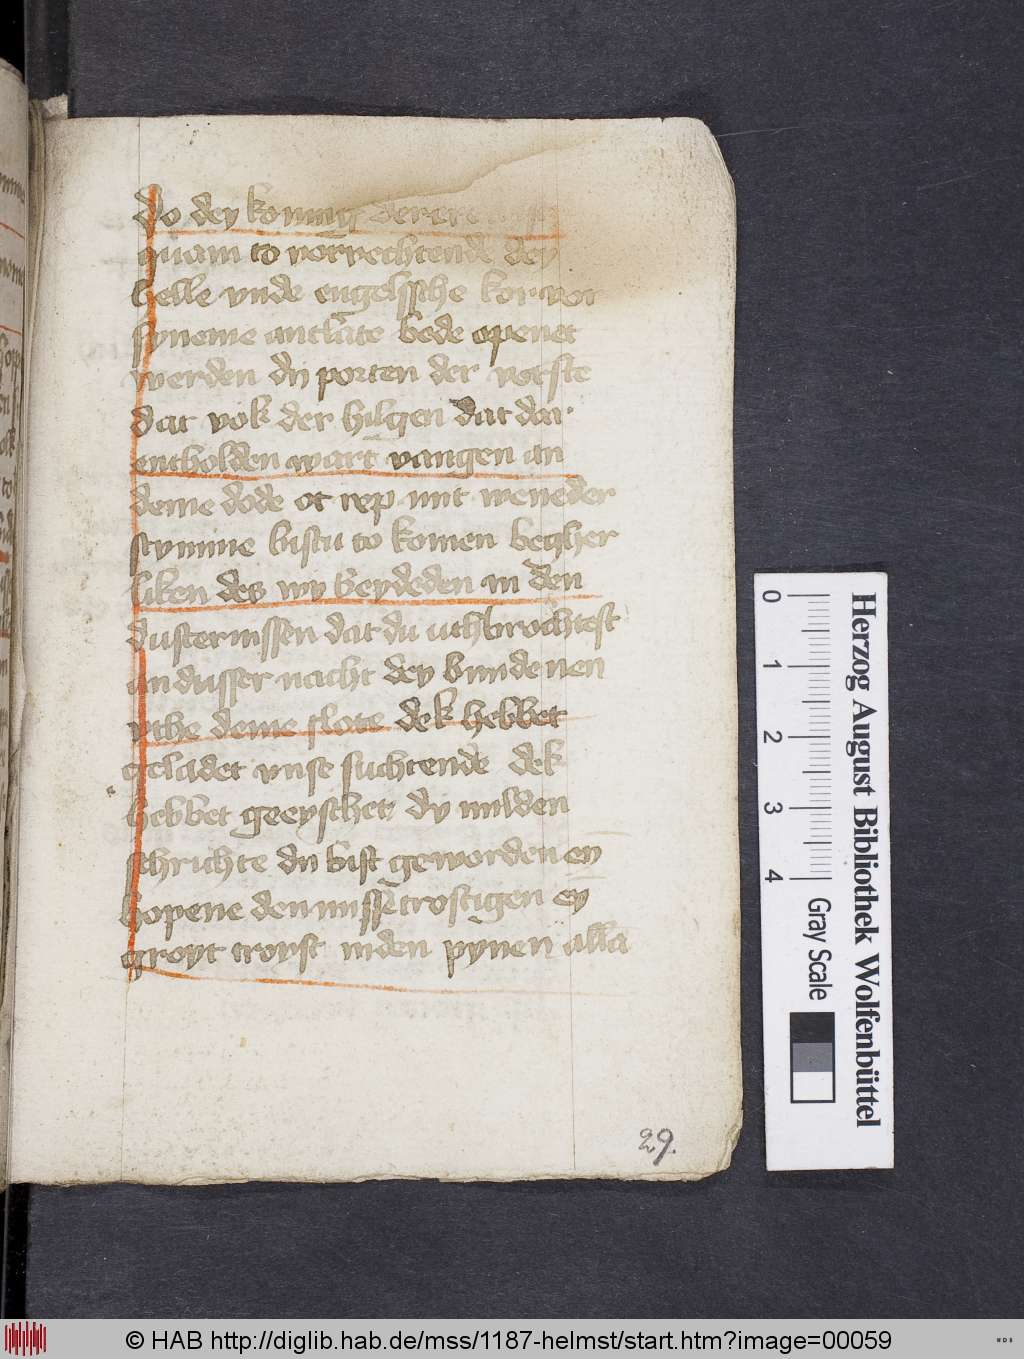 Do dey konnig dereren
quam to vorvechtende dey
helle vnde engelssche kor vor
syneme antlate bede openet
werden dy porten der vorste
dat volk der hilgen dat dar
entholden wart vangen an
deme dode ot rep mit weneder
stymme bistu to komen begher
liken des wy beydeden in den
dusternissen dat du uthbrochtest
an dusser nacht dey bundenen
vthe deme slote dek hebbet
geladet vnse suchtende dek
hebbet geeyschet dy milden
schrichte du bist geworden ey
hopene den misstrostigen ey
groyt troyst inden pynen alla
29.
0 1 2 3 4
Gray Scale
Herzog August Bibliothek Wolfenbüttel
© HAB http://diglib.hab.de/mss/1187-helmst/start.htm?image=00059